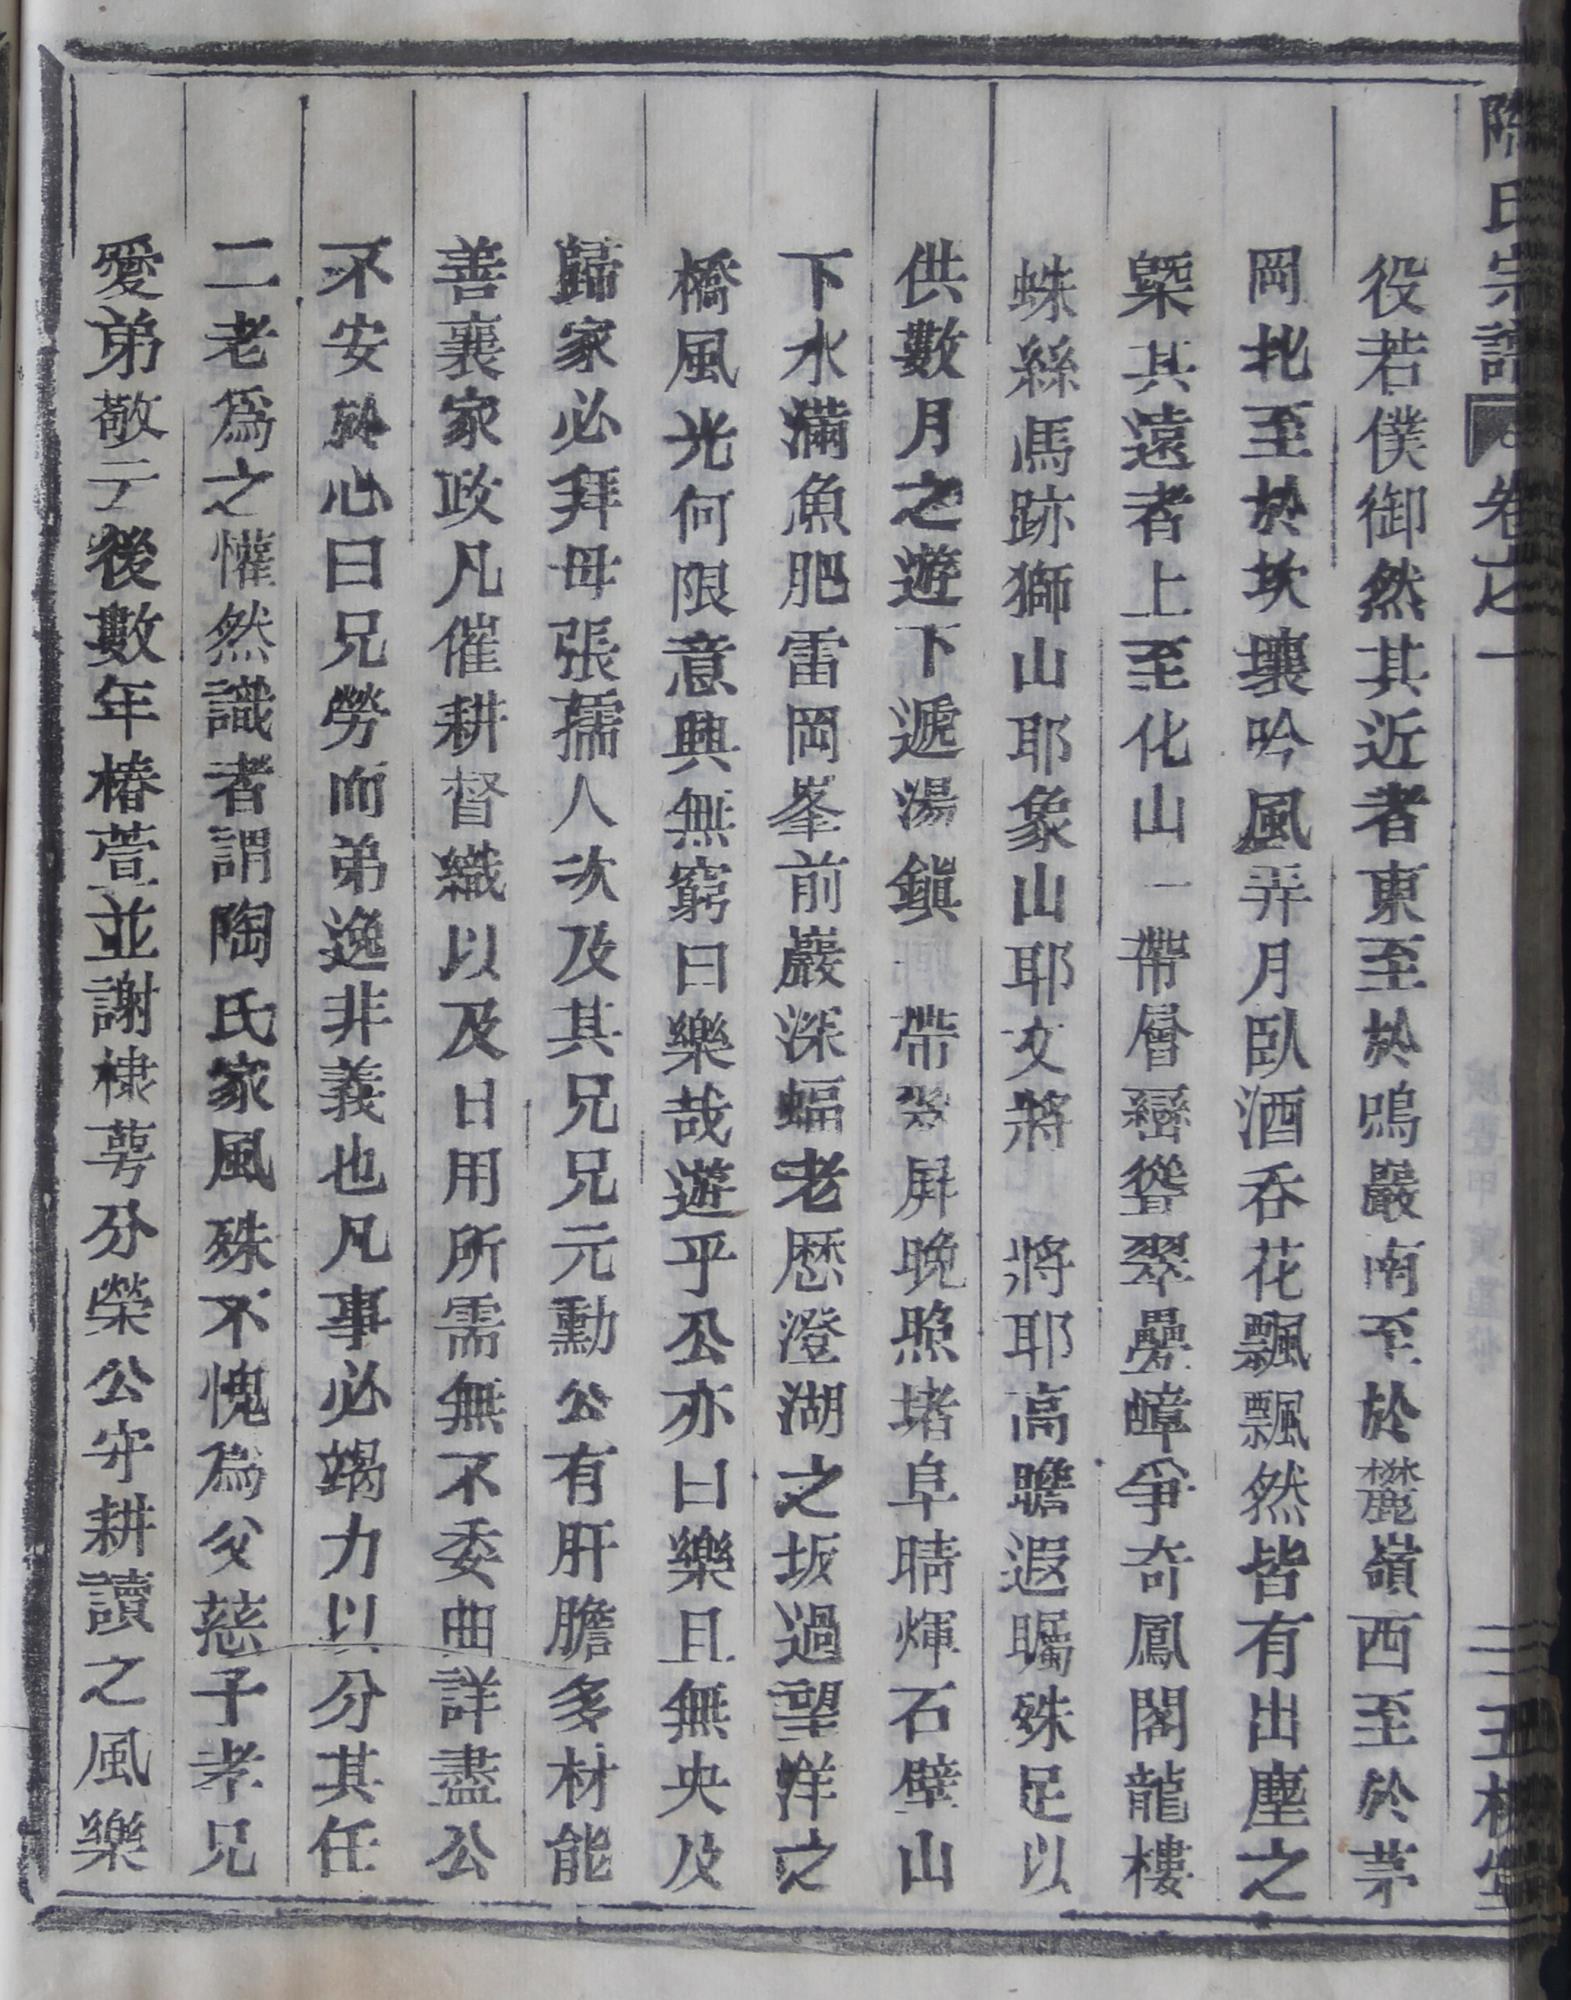 陶氏宗譜 卷之一 三 五柳堂
役若僕御然其近者東至於鳴巖南至於麓嶺西至於茅
岡北至於坎壤吟風弄月臥酒吞花飄飄然皆有出塵之
槩其遠者上至化山一帶層巒聳翠疊嶂爭奇鳳閣龍樓
蛛絲馬跡獅山耶象山耶文將 將耶高瞻遐矚殊足以
供數月之遊下遞湯鎮一帶翠屏晚照堵阜晴煇石壁山
下水滿魚肥雷岡峯前巖深蝠老愿澄湖之坂過望洋之
橋風光何限意興無窮曰樂哉遊乎公亦曰樂且無央及
歸家必拜母張孺人次及其兄兄元勳公有肝膽多材能
善襄家政凡催耕督織以及日用所需無不委曲詳盡公
不安於心曰兄勞而弟逸非義也凡事必竭力以分其任
二老爲之懽然識者謂陶氏家風殊不愧爲父慈子孝兄
愛弟敬云後數年椿萱並謝棣萼分榮公守耕讀之風樂